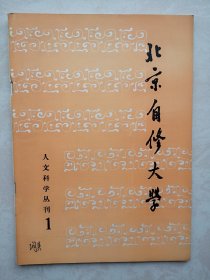 北京自修大学
人文科学丛刊
1